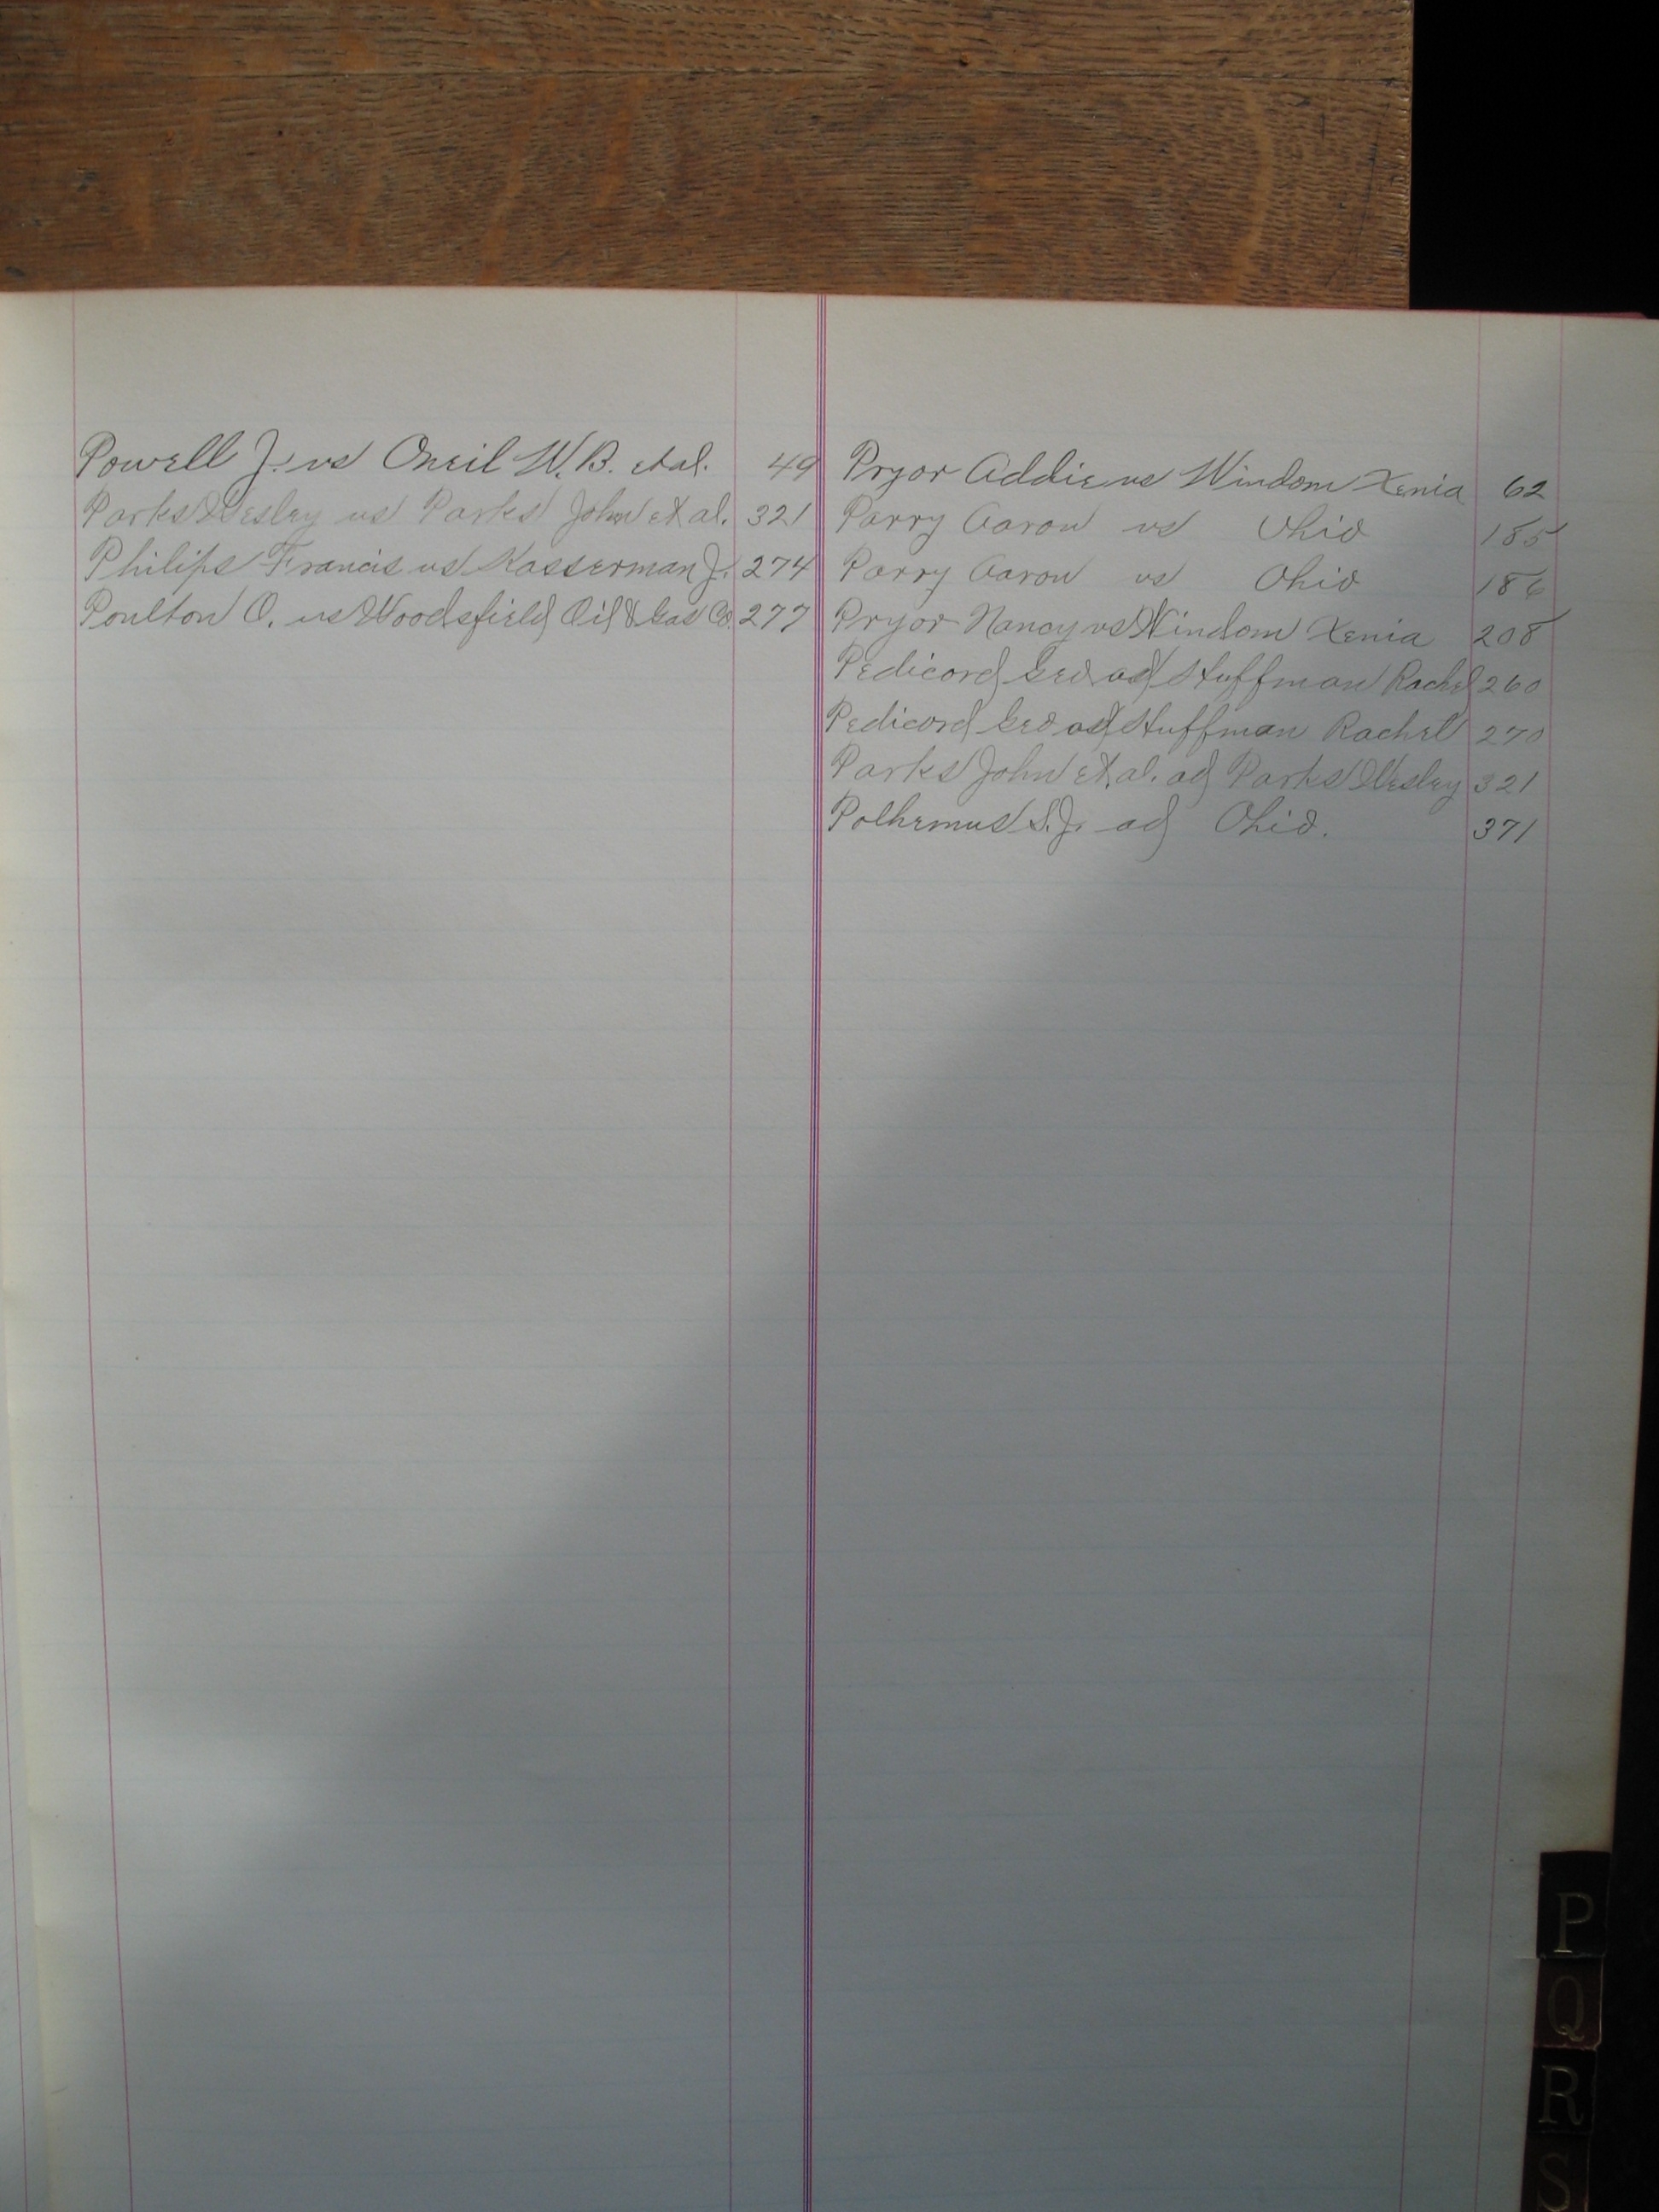 Powell J. vs Oneil W.B. et al. 49
Parks Wesley vs Parks John et al. 321
Philips Francis vs Kasserman J. 274
Poulton O. vs Woodsfield Oil & Gas Co. 277
Pryor Addie vs Windom Xenia 62
Parry Aaron vs Ohio 185
Parry Aaron vs Ohio 186
Pryor Nancy vs Windom Xenia 208
Pedicord Geo ad Huffman Rachel 260
Pedicord Geo ad Huffman Rachel 270
Parks John et al. ad Parks Wesley 321
Polhemus S.J. ad Ohio. 371
P
Q
R
S